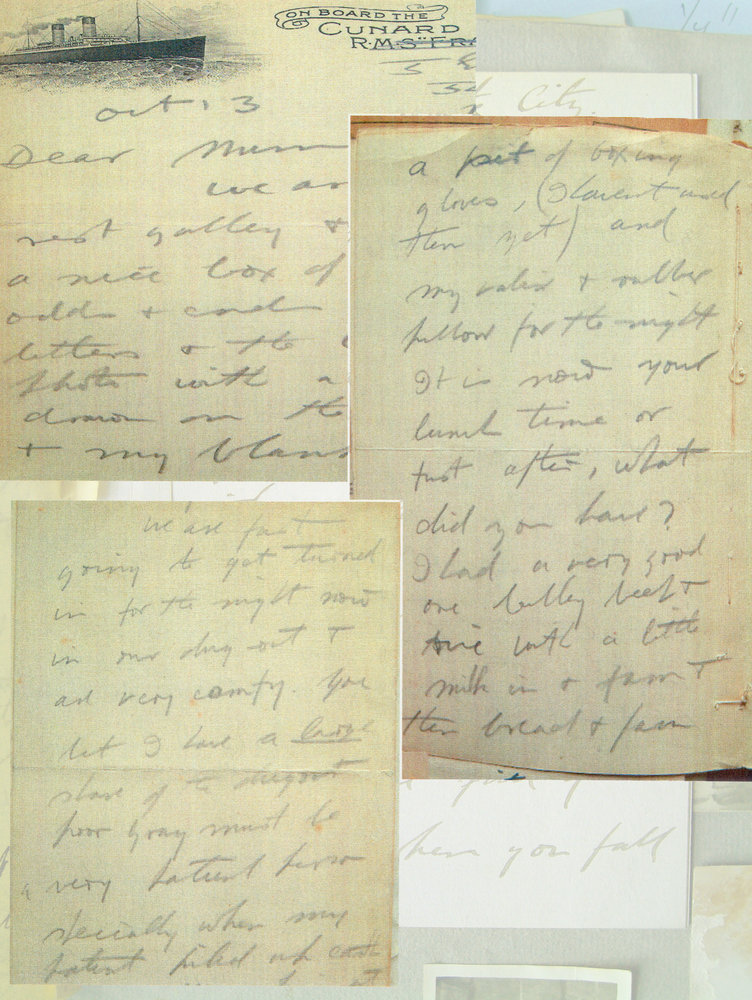 ON BOARD THE
CUNARD
R.M.S "FRA
Oct 13
Dear Mum
we ar
next galley &
a nice box of
odds & ends
letters & the
photo with a
drawn on the
& my blank
City.
a of boxing
gloves, (I havent used
them yet) and
my valise & rubber
pillow for the night
It is now your
lunch time or
just after, what
did you have?
I had a very good
one bully beef &
with a little
milk in & jam &
then bread & jam
We are just
going to get turned
in for the night now
in our dug-out &
are very comfy. You
bet I have a large
share of the dugout
poor Gray must be
a very patient person
specially when my
patent piled up
when you fall